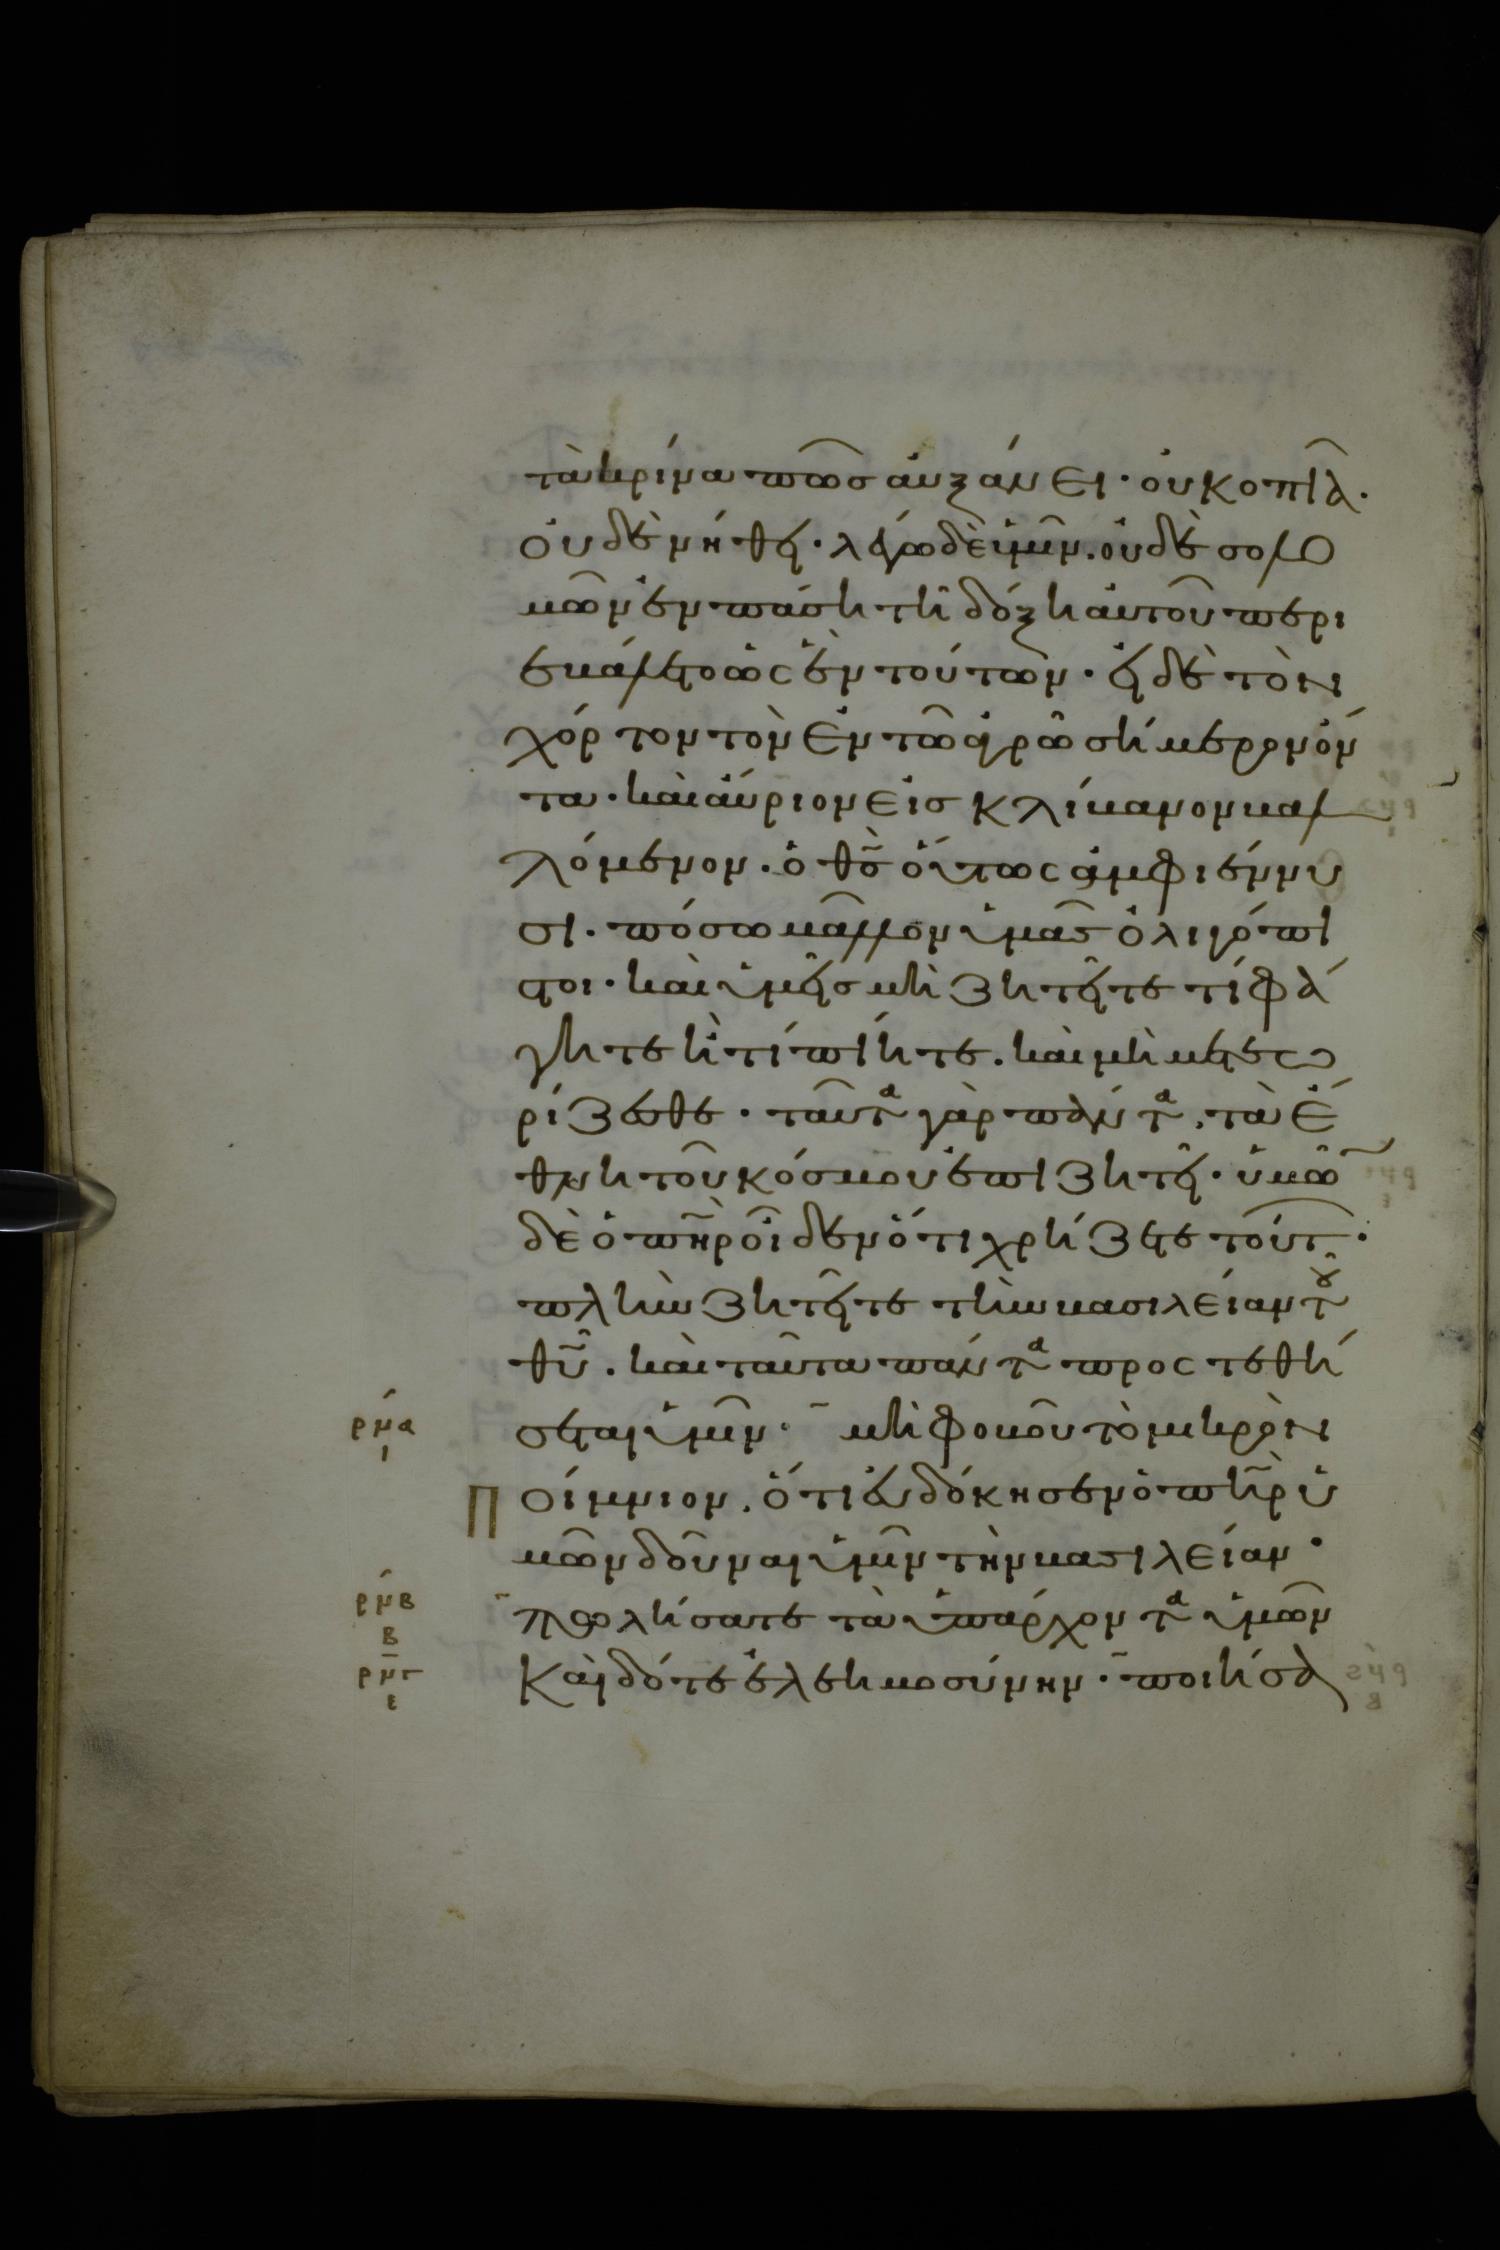 τὰ κρίνα πῶς αὐξάνει· οὐ κοπιᾶ·
οὐδὲ νήθει· λέγω δὲ ὑμῖν. οὐδὲ σολο
μῶν ἐν πάση τῆ δόξη αὐτοῦ περι
εβάλετο ὡς ἓν τούτων· εἰ δὲ τὸν
χόρτον τὸν ἐν τῶ ἀγρῶ σήμερον ὄν
τα· καὶ αὔριον εἰς κλίβανον βαλ
λόμενον. ὁ θς̃ οὕτως ἀμφιέννυ
σι. πόσω μᾶλλον ὑμᾶς ὀλιγόπι
στοι· καὶ ὑμεῖς μὴ ζητεῖτε τί φά
γητε ἢ τί πίητε. καὶ μὴ μετεω
ρίζεσθε· ταῦτα γὰρ πάντα, τὰ ἔ
θνη τοῦ κόσμου ἐπιζητεῖ· ὑμῶ
δὲ ὁ πη̃ρ οἶδεν ὅτι χρήζετε τούτ·
πλὴν ζητεῖτε τὴν βασιλείαν τοῦ
θυ̃. καὶ ταῦτα πάντα προςτεθή
ρμα σεται ὑμῖν· μὴ φοβοῦ τὸ μικρὸν
ι
Ποίμνιον. ὅτι εὐδόκησεν ὁ πη̃ρ ὑ
μῶν δοῦναι ὑμῖν τὴν βασιλείαν·
ρμβ πωλήσατε τὰ ὑπάρχοντα ὑμῶν
β
ρμγ Καὶ δότε ἐλεημοσύνην· ποιήσα
ε